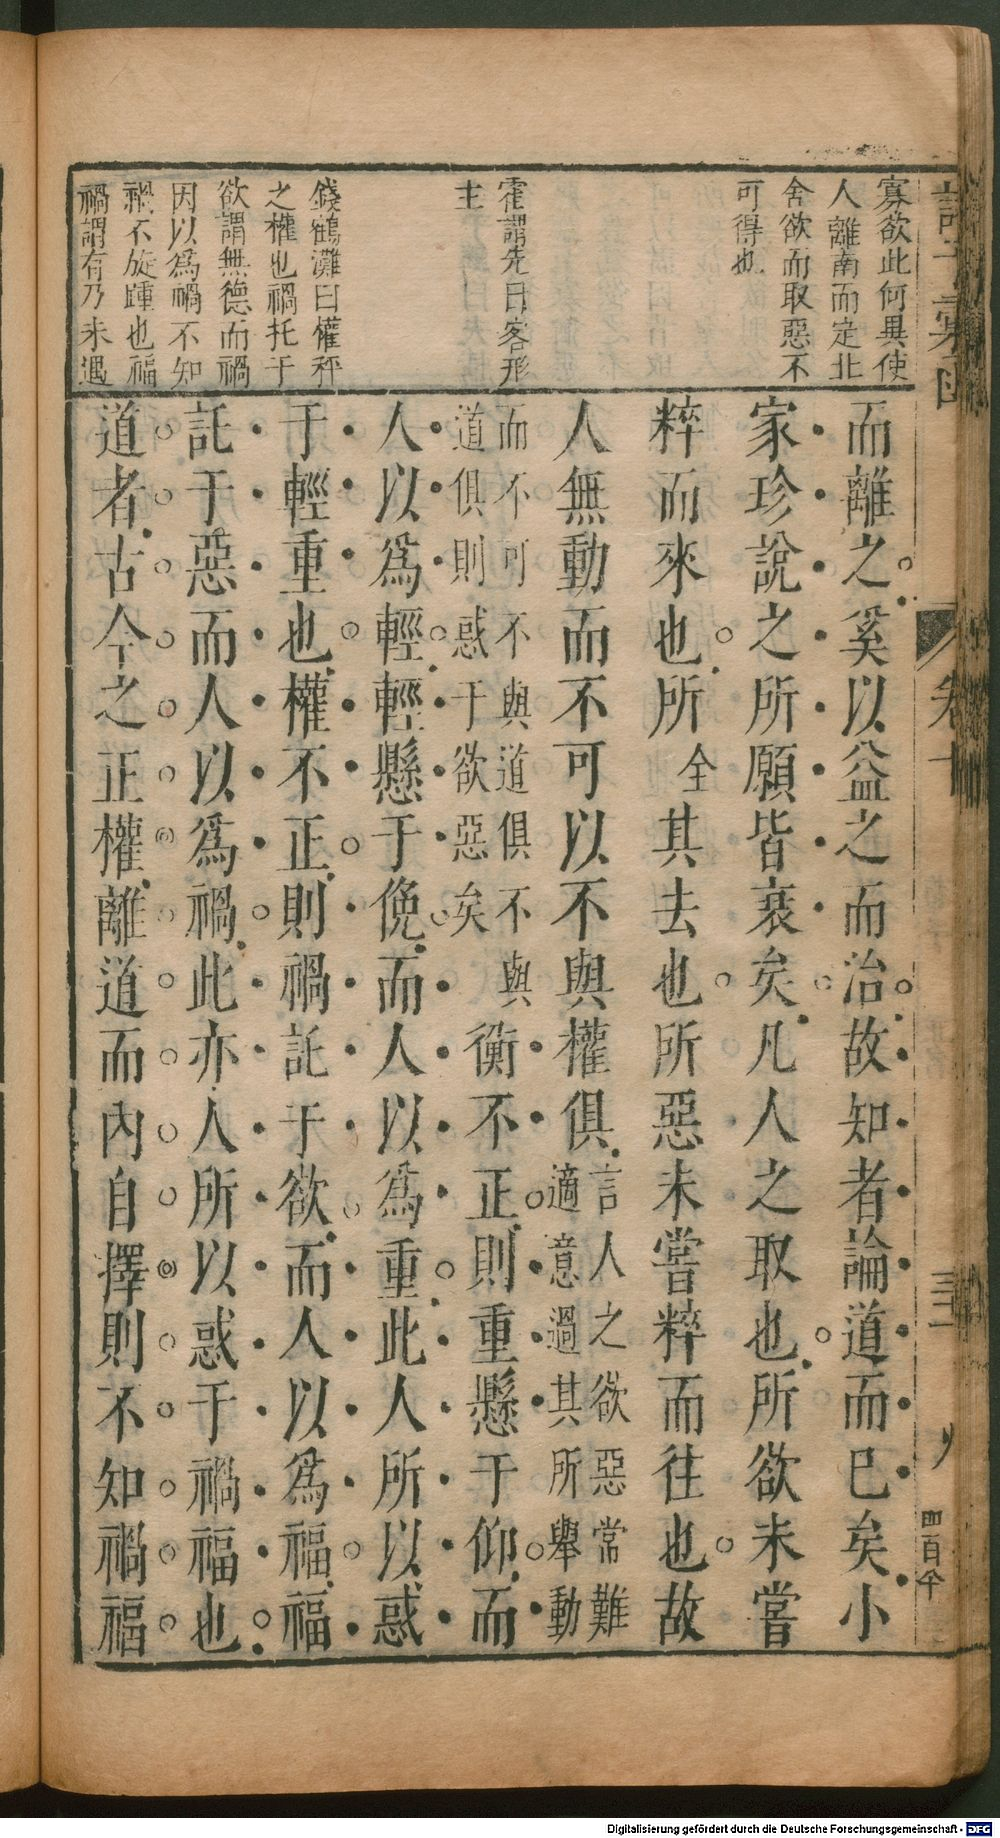 寡欲此何異使
人離南而定北
舍欲而取惡不
可得也
霍謂先曰客形
主
錢鶴灘曰權秤
之權也禍托于
欲謂無德而禍
因以為禍不知
禍不旋踵也福
禍謂有乃未遇
而離之奚以益之而治故知者論道而已矣小
家珍說之所願皆衰矣凡人之取也所欲未嘗
粹而來也所全其去也所惡未嘗粹而往也故
人無動而不可以不與權俱言人之欲惡常難
適意過其所舉動
而不可不與道俱不與
道俱則惑于欲惡矣
衡不正則重懸于仰而
人以爲輕輕懸于俛而人以爲重此人所以惑
于輕重也權不正則禍託于欲而人以爲福福
託于惡而人以爲禍此亦人所以惑于禍福也
道者古今之正權離道而內自擇則不知禍福
卷十
四百
Digitalisierung gefördert durch die Deutsche Forschungsgemeinschaft - DFG